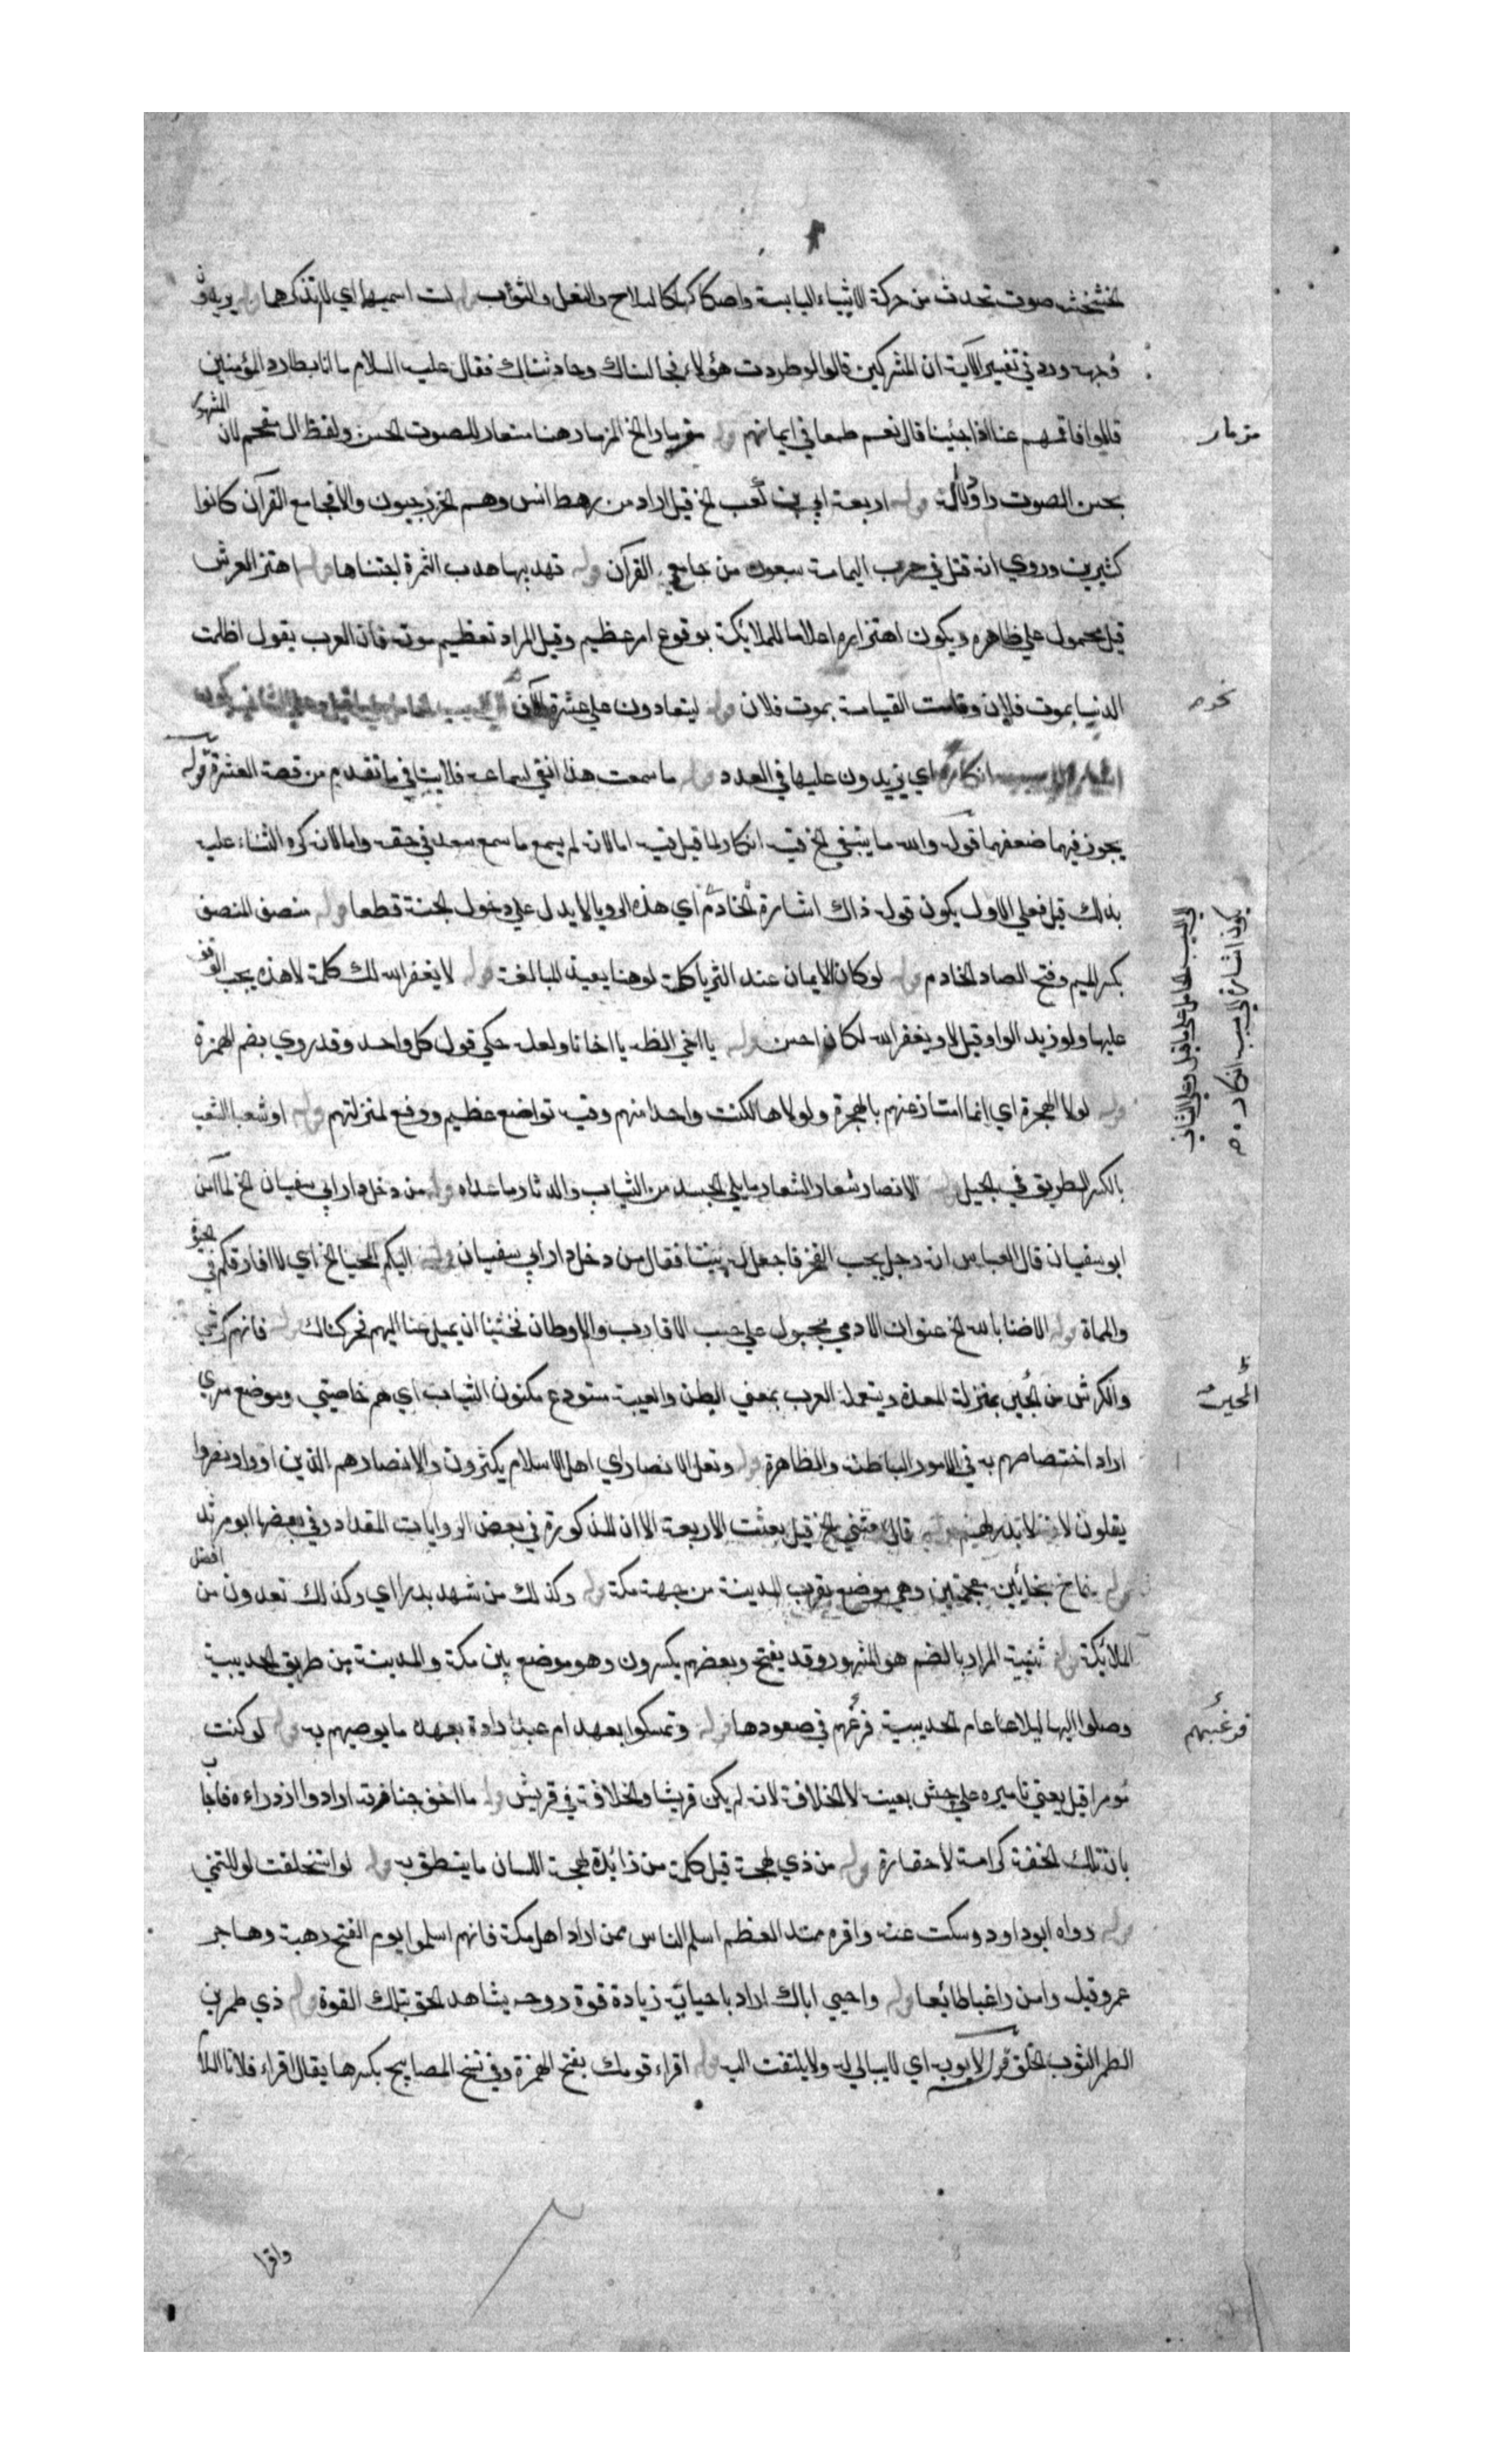 خشخشة صوت تحدث من حركة الاشياء اليابسة واصكاكها كالسلاح والنعل والثوب قوله لست اسميهما اي لا تذكرهما قوله يريدون
وجهه ورد في تفسير الآية ان المشركين قالوا لو طردت هؤلاء لجالسناك وحادثناك فقال عليه السلام ما انا بطارد المؤمنين
قالوا فاقمهم عنا اذا جئينا قال نعم طمعا في ايمانهم قوله مزمارا الخ المزمار هنا مستعار للصوت الحسن ولفظ ال مقحم لان المشهور
مزمار
بحسن الصوت داود لا آله قوله اربعة ابي بن كعب الخ قيل اراد من رهط انس وهم الخزرجيون والا فجامع القرآن كانوا
كثيرين وروي انه قتل في حرب اليمامة سبعون من جامعي القرآن قوله تهدبها هدب الثمرة اجتناها قوله اهتز العرش
قيل محمول على ظاهره ويكون اهتزازه اعلاما للملايكة بوقوع امر عظيم وقيل المراد تعظيم موته فان العرب يقول اظلمت
الدنيا بموت فلان وقامت القيامة بموت فلان قوله ليتعادون على عشرة
نحوه
اي يزيدون عليها في العدد قوله ما سمعت هذا انتفى لسماعه فلا ينافي ما تقدم من قصة العشرة قوله
يجوز فيهما ضعفهما قوله والله ما ينبغي الخ فيه انكار لما قيل فيه اما لانه لم يسمع ما سمع سعد في حقه واما لانه كره الثناء عليه
بذلك قيل فعلى الاول يكون قوله ذاك اشارة اي هذه الرويا لا يدل على دخول الجنة قطعا قوله منصف المنصف
الى السبب الحامل على ما قيل وعلى الثاني
يكون اشارة الى سبب انكاره
بكسر الميم وفتح الصاد الخادم قوله لو كان الايمان عند الثريا كلمة لو هنا بعينه للمبالغة قوله لا يغفر الله لك كلمة لا هذه يجب الوقف
عليها ولو زيد الواو قيل لا ويغفر الله لكان احسن قوله يا اخي الظ يا اخانا ولعله حكي قول كل واحد وقد روي بضم الهمزة
قوله لولا الهجرة اي انما امتاز عنهم بالهجرة ولولاها لكنت واحدا منهم وفيه تواضع عظيم ورفع لمنزلتهم قوله او شعبا الشعب
بالكسر الطريق في الجبل قوله الانصار شعار الشعار ما يلي الجسد من الثياب والدثار ما عداه قوله من دخل دار ابي سفيان الخ لما آمن
ابو سفيان قال العباس انه رجل يحب الفخر فاجعل له شيئا فقال من دخل دار ابي سفيان قوله اليكم المحيا الخ اي لا افارقكم في الحيوة
والمماة قوله الا ضنا بالله الخ عنوا ان الادمي مجبول على حب الاقارب والاوطان فخشينا ان يميل عنا اليهم فحركناك قوله فانهم كرشي
والكرش من المجتر بمنزلة المعدة ويستعمله العرب بمعنى البطن والعيبة مستودع مكنون الثياب اي هم خاصيتي وموضع سري
اراد اختصاصهم به في الامور الباطنة والظاهرة قوله وتقل الانصار اي اهل الاسلام يكثرون والانصار هم الذين اووا ونصروا
يقلون لانه لا بدل لهم قوله قال بعثني الخ قيل بعثت الاربعة الا ان المذكورة في بعض الروايات المقداد وفي بعضها ابو مرثد
قوله خاخ بخائين معجمتين وهي موضع بقرب المدينة من جهة مكة قوله وكذلك من شهد بدرا اي وكذلك تعدون من افضل
الملائكة قوله ثنية المرار بالضم هو المشهور وقد يفتح وبعضهم يكسرون وهو موضع بين مكة والمدينة من طريق الحديبية
وصلوا اليها ليلا عام الحديبية فرغبهم في صعودها قوله وتمسكوا بعهد ام عبد اراد بعهده ما يوصيهم به قوله لو كنت
فرغبهم
مومرا قيل يعني تاميره على جيش بعينه لا الخلافة لانه لم يكن قريشا والخلافة في قريش قوله ما اخف جنازته ارادوا ازدراءه فاجاب
بان تلك الخفة كرامة لا حقارة قوله من ذي لهجة قيل كلمة من زائدة لهجة اللسان ما ينطق به قوله لو استخلفت لو للتمني
قوله رواه ابو داود وسكت عنه واقره عبد العظيم اسلم الناس ممن اراد اهل مكة فانهم اسلموا يوم الفتح رهبة وهاجر
عمرو قبله وامن راغبا طائعا قوله واحيي اباك اراد باحيائه زيادة قوة روحه يشاهد الحق بتلك القوة قوله ذي طمرين
الطمر الثوب الخلق قوله لا يوبه اي لا يبالي له ولا يلتفت اليه قوله اقراء قومك بفتح الهمزة وفي نسخ المصابيح بكسرها يقال اقراء فلانا السلام
واقرا